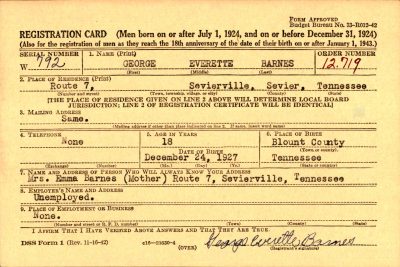 Form Approved
Budget Bureau No. 33-R013-42
REGISTRATION CARD (Men born on or after July 1, 1924, and on or before December 31, 1924)
(Also for the registration of men as they reach the 18th anniversary of the date of their birth on or after January 1, 1943.)
SERIAL NUMBER 1. NAME (Print) ORDER NUMBER
W 792 GEORGE EVERETTE BARNES 12,719
(First) (Middle) (Last)
2. PLACE OF RESIDENCE (Print)
Route 7, Sevierville, Sevier, Tennessee
(Number and street) (Town, township, village, or city) (County) (State)
[THE PLACE OF RESIDENCE GIVEN ON LINE 2 ABOVE WILL DETERMINE LOCAL BOARD
JURISDICTION; LINE 2 OF REGISTRATION CERTIFICATE WILL BE IDENTICAL]
3. MAILING ADDRESS
Same.
[Mailing address if other than place indicated on line 2. If same, insert word same]
4. TELEPHONE 5. AGE IN YEARS 6. PLACE OF BIRTH
None 18 Blount County
DATE OF BIRTH (Town or county)
December 24, 1927 Tennessee
(Exchange) (Number) (Mo.) (Day) (Yr.) (State or country)
7. NAME AND ADDRESS OF PERSON WHO WILL ALWAYS KNOW YOUR ADDRESS
Mrs. Emma Barnes (Mother) Route 7, Sevierville, Tennessee
8. EMPLOYER'S NAME AND ADDRESS
Unemployed.
9. PLACE OF EMPLOYMENT OR BUSINESS
None.
(Number and street or R. F. D. number) (Town) (County) (State)
I AFFIRM THAT I HAVE VERIFIED ABOVE ANSWERS AND THAT THEY ARE TRUE.
DSS Form 1 (Rev. 11-16-42) (OVER) George Everette Barnes
(Registrant's signature)